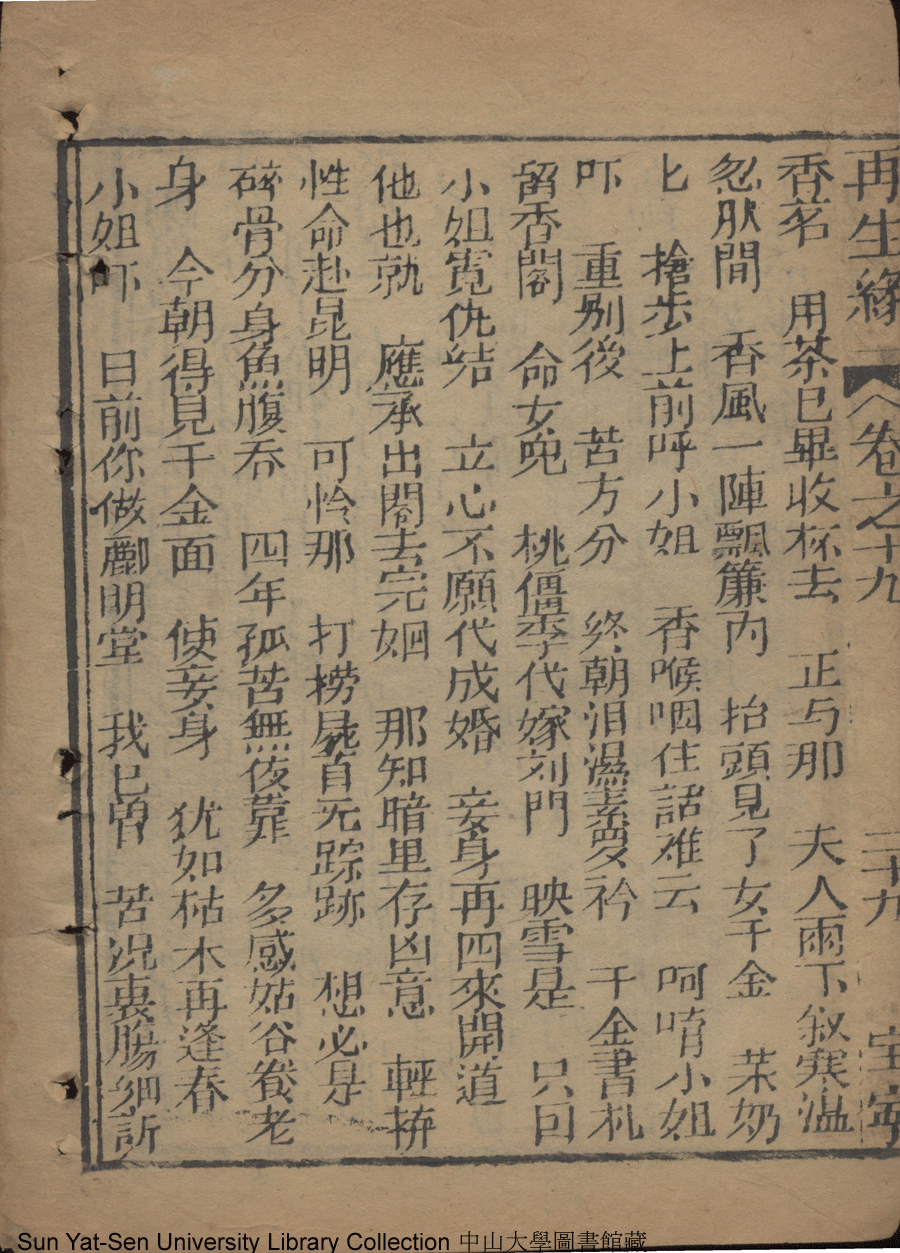 再生緣 卷之十九 二十九
香茗 用茶已畢收杯去 正与那 夫人兩下叙寒溫
忽肰間 香風一陣飄簾內 抬頭見了女千金 茉奶
匕 搶步上前呼小姐 香喉咽住話难云 呵唷小姐
吓 重别後 苦方分 終朝泪濕素夏衿 千金書札
留香閣 命女兒 桃僵李代嫁刘門 映雪是 只回
小姐寬仇結 立心不願代成婚 妾身再四來開道
他也䓀 應承出閣去完姻 那知暗里存凶意 輕𢬵
性命赴昆明 可怜那 打撈屍首无踪跡 想必是
碎骨分身魚腹吞 四年孤苦無依靠 多感姑爷養老
身 今朝得見千金面 使妾身 犹如枯木再逢春
小姐吓 日前你做酈明堂 我已曽 苦况衷腸細訴
Sun Yat-Sen University Library Collection 中山大學圖書館藏